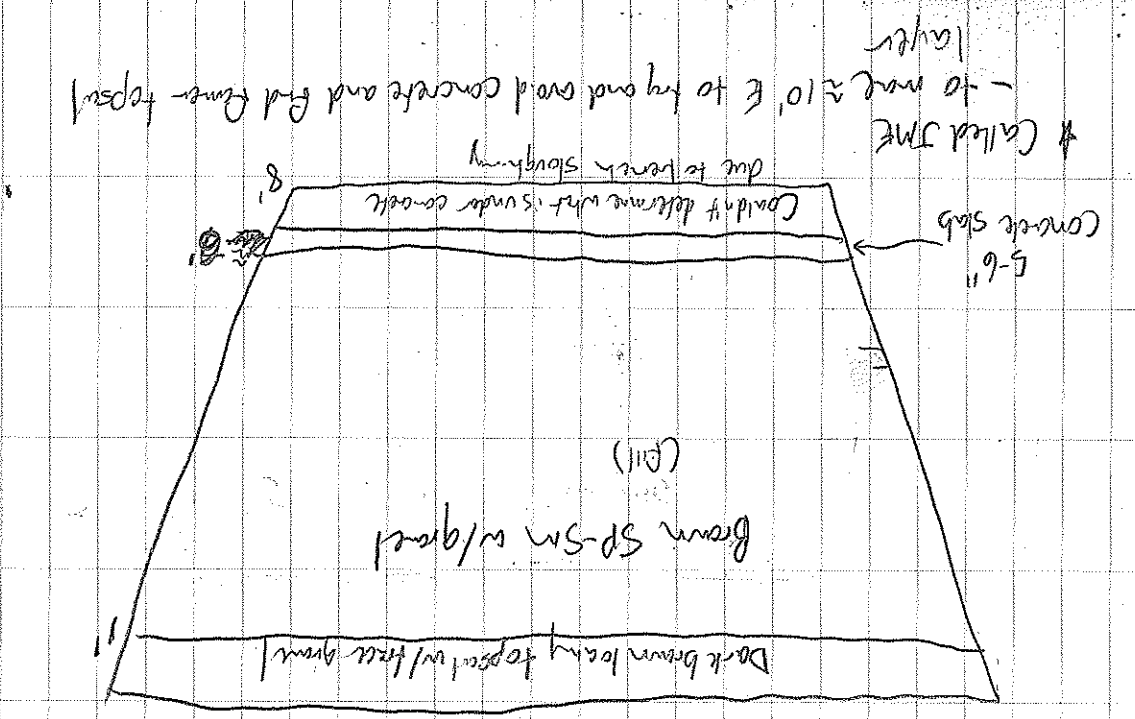 Dark brown loamy topsoil w/trace gravel
1'
Brown SP-SM w/gravel
(Fill)
5-6"
Concrete slab
Couldn't determine what is under concrete
due to trench sloughing
8'
* Called JME
- to move ≈ 10' E to try and avoid concrete and find former topsoil
layer